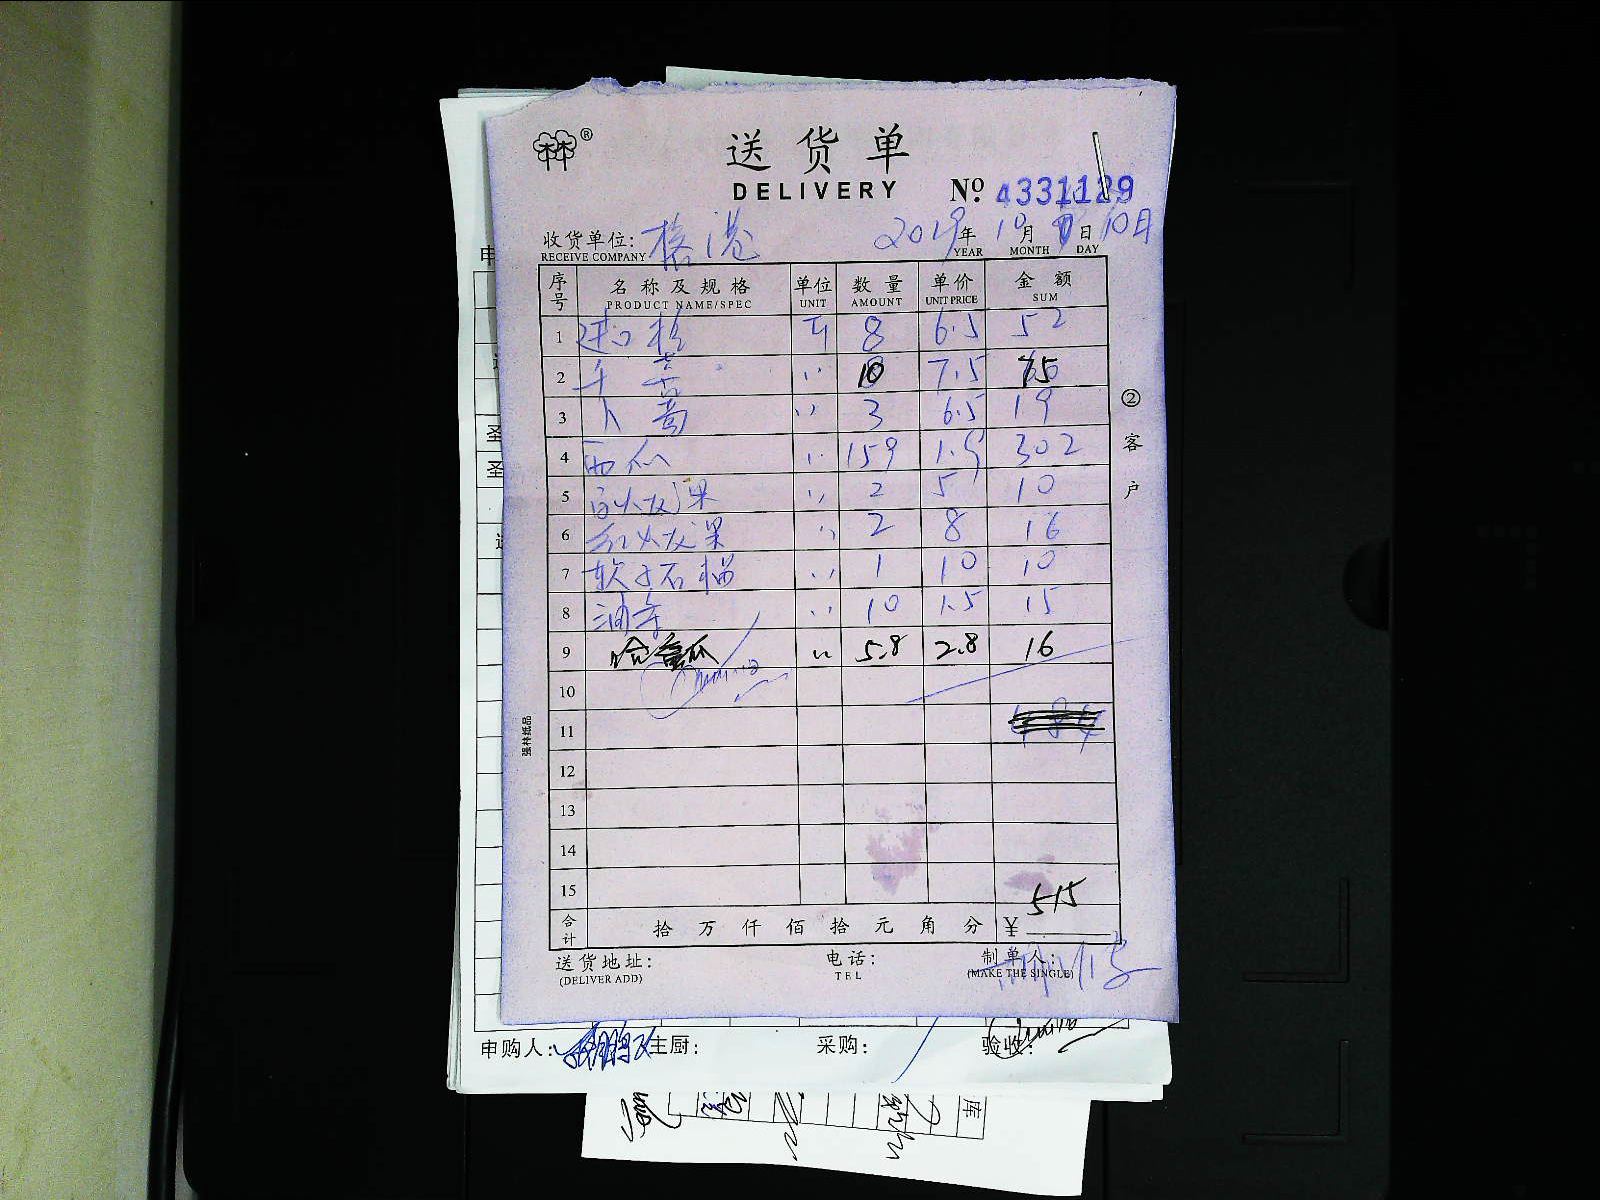 林®
送货单
DELIVERY Nº 4331129
收货单位: 2019年10月 日10日
RECEIVE COMPANY YEAR MONTH DAY
序号 名称及规格 单位 数量 单价 金额
PRODUCT NAME/SPEC UNIT AMOUNT UNIT PRICE SUM
1 进口 8 6.5 52
2 〃 10 7.5 75
3 〃 3 6.5 19
4 西瓜 〃 159 1.9 302
5 白火龙果 〃 2 5 10
6 红火龙果 〃 2 8 16
7 软子石榴 〃 1 10 10
8 油条 〃 10 1.5 15
9 哈密瓜 〃 5.8 2.8 16
10
11
12
13
14
15 515
合计 拾万仟佰拾元角分 ¥
送货地址: 电话: 制单人:
(DELIVER ADD) TEL (MAKE THE SINGLE)
②客户
强林纸品
申购人: 主厨: 采购: 验收:
库